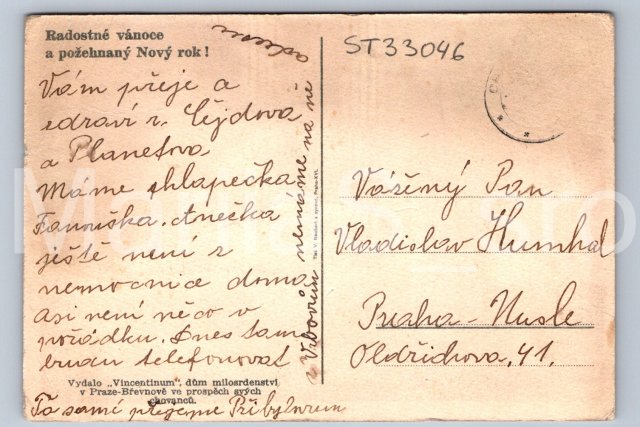 Radostné vánoce
a požehnaný Nový rok!
Vám přeje a
zdraví r. Cejdova
a Planetova
Máme chlapečka
Fanouška. Anečka
ještě není z
nemocnice doma
asi není něco v
pořádku. Dnes tam
budu telefonovat
Vrbovům nemáme na ně
adresu
Vydalo „Vincentinum", dům milosrdenství
v Praze-Břevnově ve prospěch svých
chovanců.
To samé přejeme Přibylovům
ST33046
Vážený Pan
Vladislav Humhal
Praha - Nusle
Oldřichova, 41.